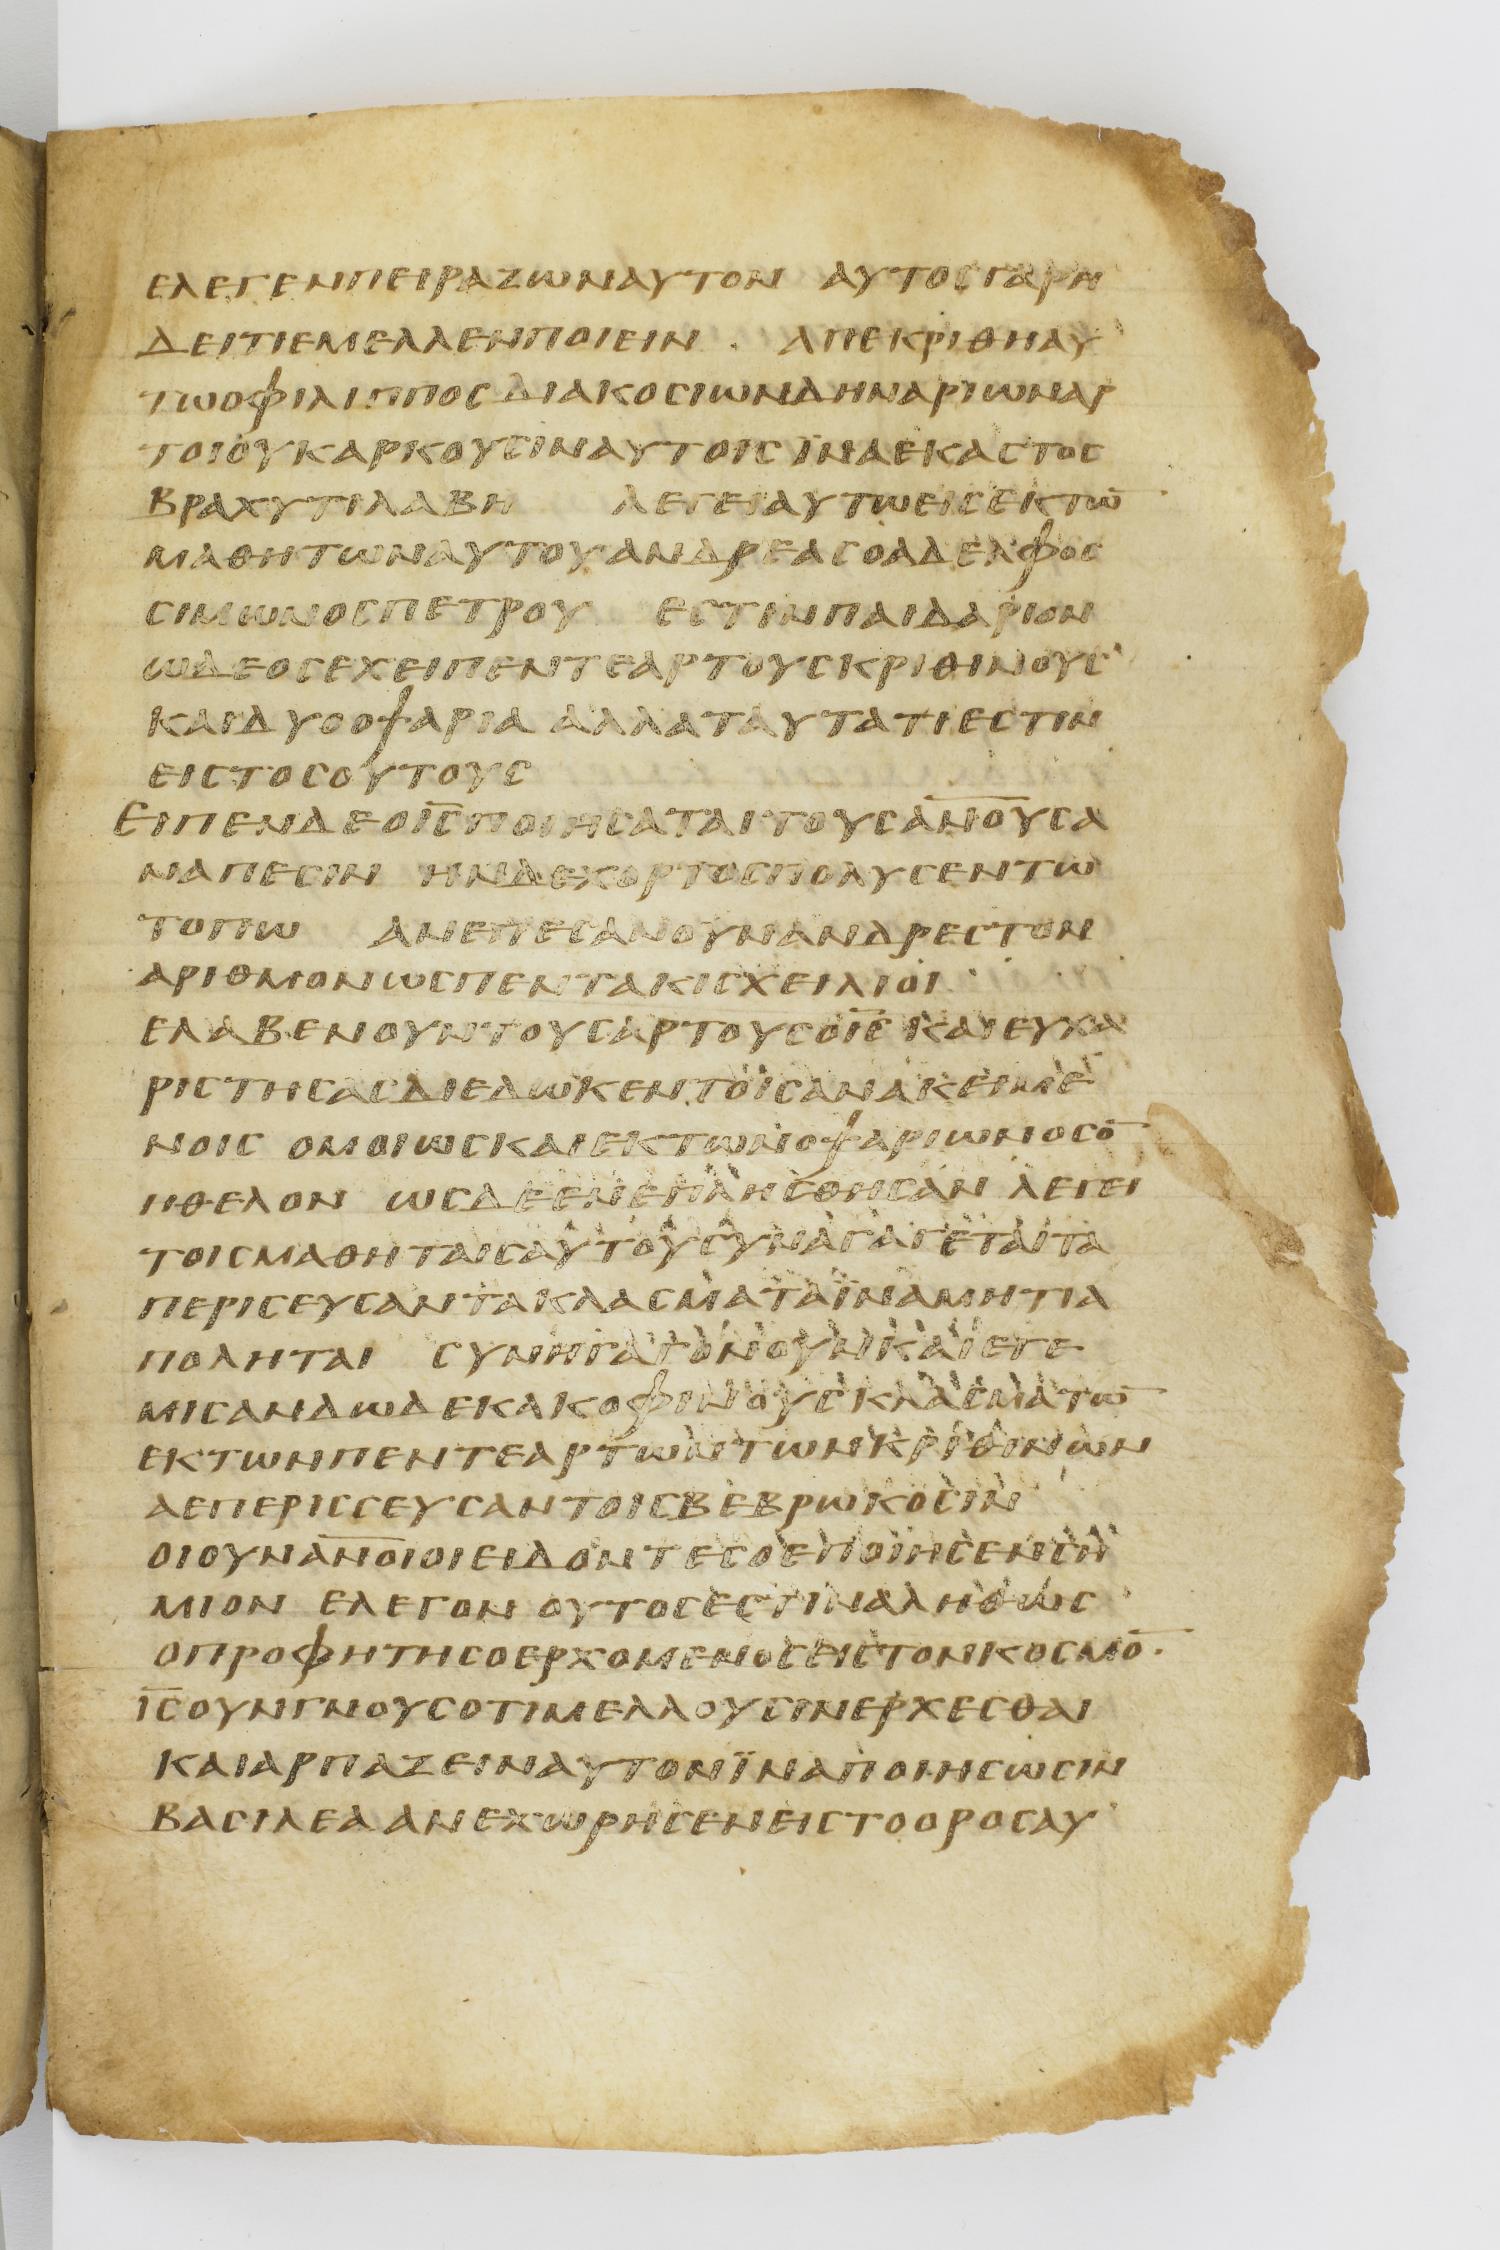 ελεγενπειραζωναυτον αυτοσγαρη
δειτιεμελλενποιειν · απεκριθηαυ
τωοφιλιπποσδιακοσιωνδηναριωναρ
τοιουκαρκουσιναυτοισϊναεκαστοσ
βραχυτιλαβη λεγειαυτωεισεκτω̅
μαθητωναυτουανδρεασοαδελφοσ
σιμωνοσπετρου εστινπαιδαριον
ωδεοσεχειπεντεαρτουσκριθινουσ
καιδυοοψαρια αλλαταυτατιεστιν
ειστοσουτουσ
Ειπενδεοι̅σ̅ποιησαταιτουσα̅ν̅ο̅υ̅σα
ναπεσιν ηνδεχορτοσπολυσεντω
τοπω ανεπεσανουνανδρεστον
αριθμονωσπεντακισχειλιοι
ελαβενουντουσαρτουσοι̅σ̅ καιευχα
ριστησασδιεδωκεντοισανακειμε
νοισ ομοιωσκαιεκτωνοψαριωνοσο̅
ηθελον ωσδεενεπλησθησαν λεγει
τοισμαθηταισαυτουσυναγαγεταιτα
περισευσαντακλασματαϊναμητια
ποληται συνηγαγονουνκαιεγε
μισανδωδεκακοφινουσκλασματω̅
εκτωνπεντεαρτωντωνκριθινων
αεπερισσευσαντοισβεβρωκοσιν
οιουνα̅ν̅ο̅ι̅οιειδοντεσοεποιησενση
μιον ελεγον ουτοσεστιναληθωσ
οπροφητησοερχομενοσειστονκοσμο̅·
ι̅σ̅ουνγνουσοτιμελλουσινερχεσθαι
καιαρπαζειναυτονϊναποιησωσιν
βασιλεαανεχωρησενειστοοροσαυ